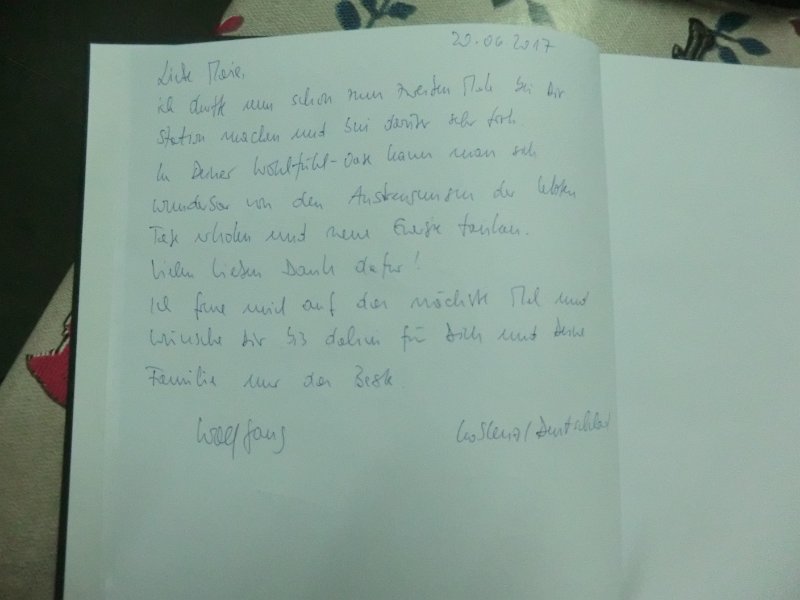 20.06.2017
Liebe Maria,
ich durfte nun schon zum zweiten Mal bei Dir
Station machen und bin darüber sehr froh.
In Deiner Wohlfühl-Oase kann man sich
wunderbar von den Anstrengungen der letzten
Tage erholen und neue Energie tanken.
Vielen lieben Dank dafür!
Ich freue mich auf das nächste Mal und
wünsche Dir bis dahin für Dich und Deine
Familie nur das Beste.
Wolfgang
Koblenz/Deutschland